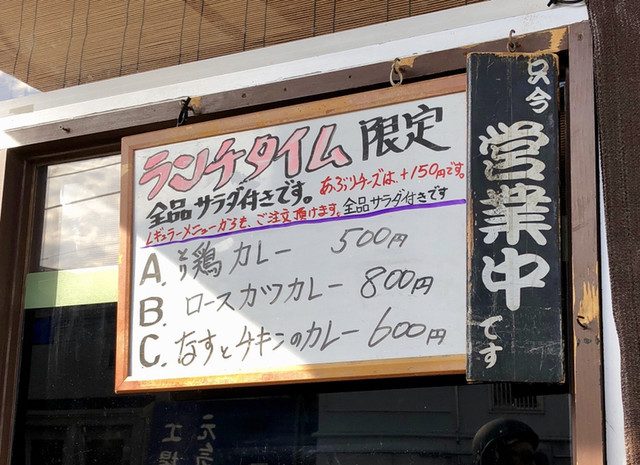 ランチタイム 限定
全品 サラダ付きです。
あぶりチーズは、+150円です。
レギュラーメニューからも、ご注文頂けます。全品サラダ付きです
A. 鶏カレー 500円
とり
B. ロースカツカレー 800円
C. なすとチキンのカレー 600円
只今
営業中
です